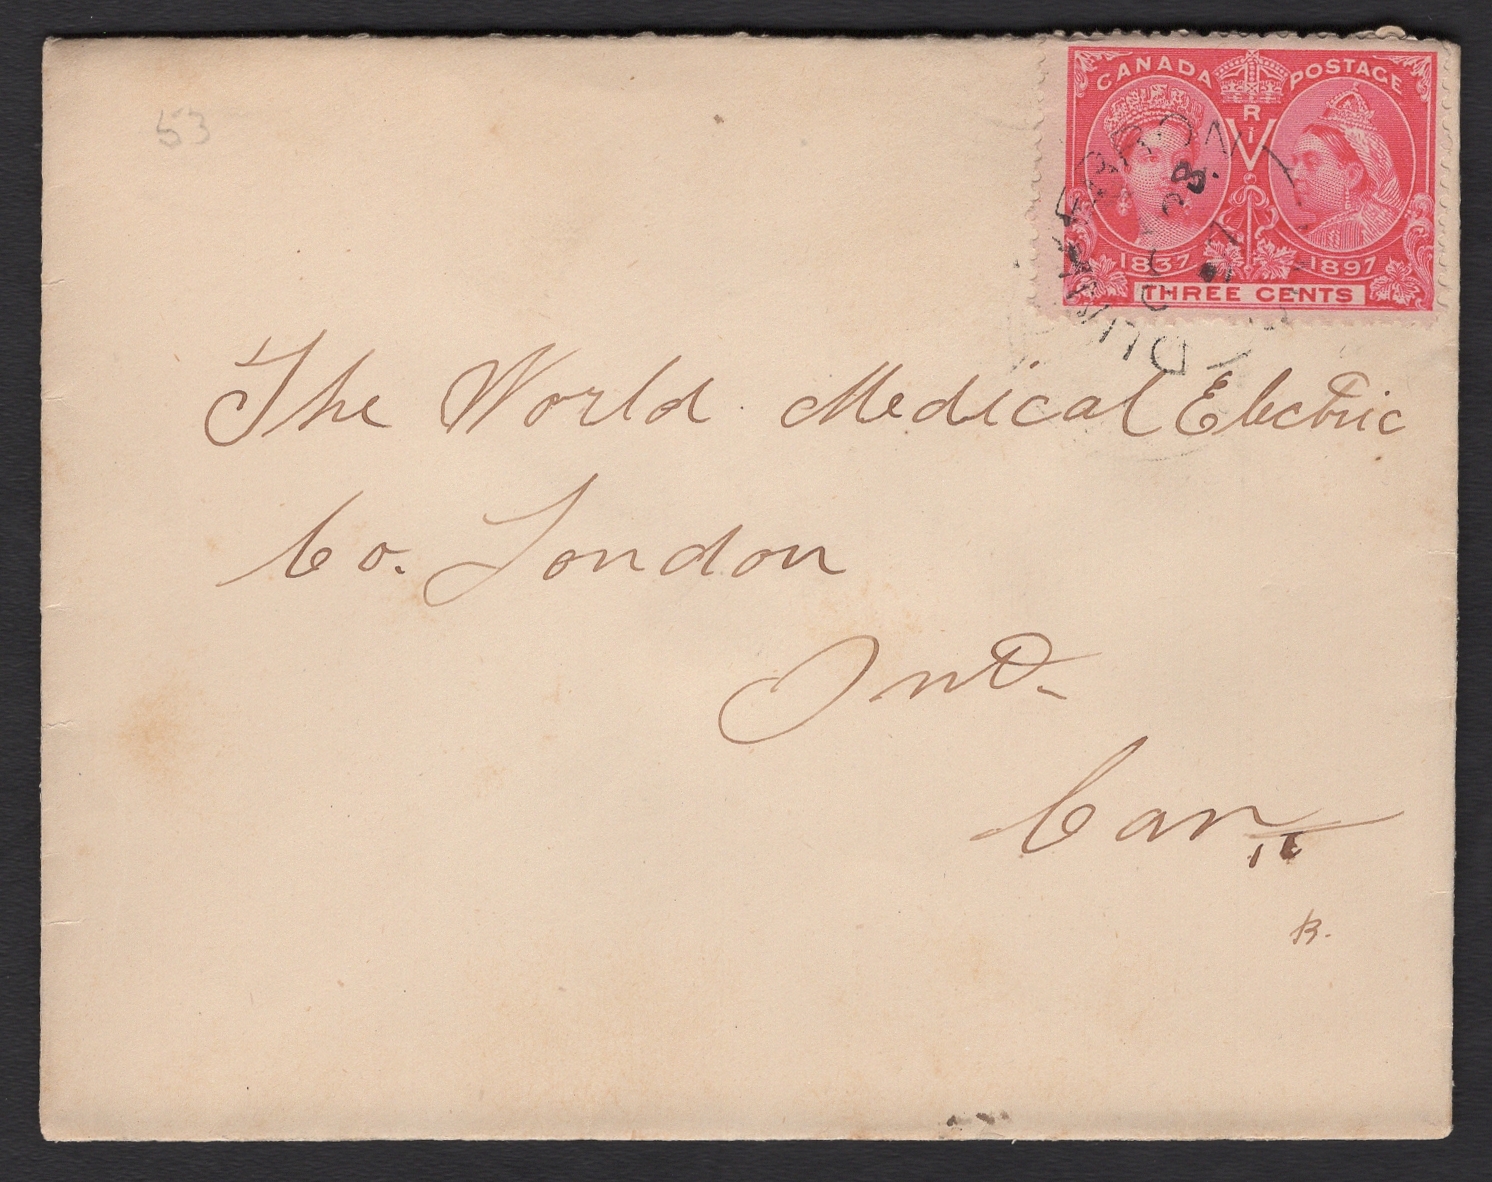 53
CANADA POSTAGE
V R I
1837 1897
THREE CENTS
28
The World Medical Electric
Co. London
Ont.
Can
R.